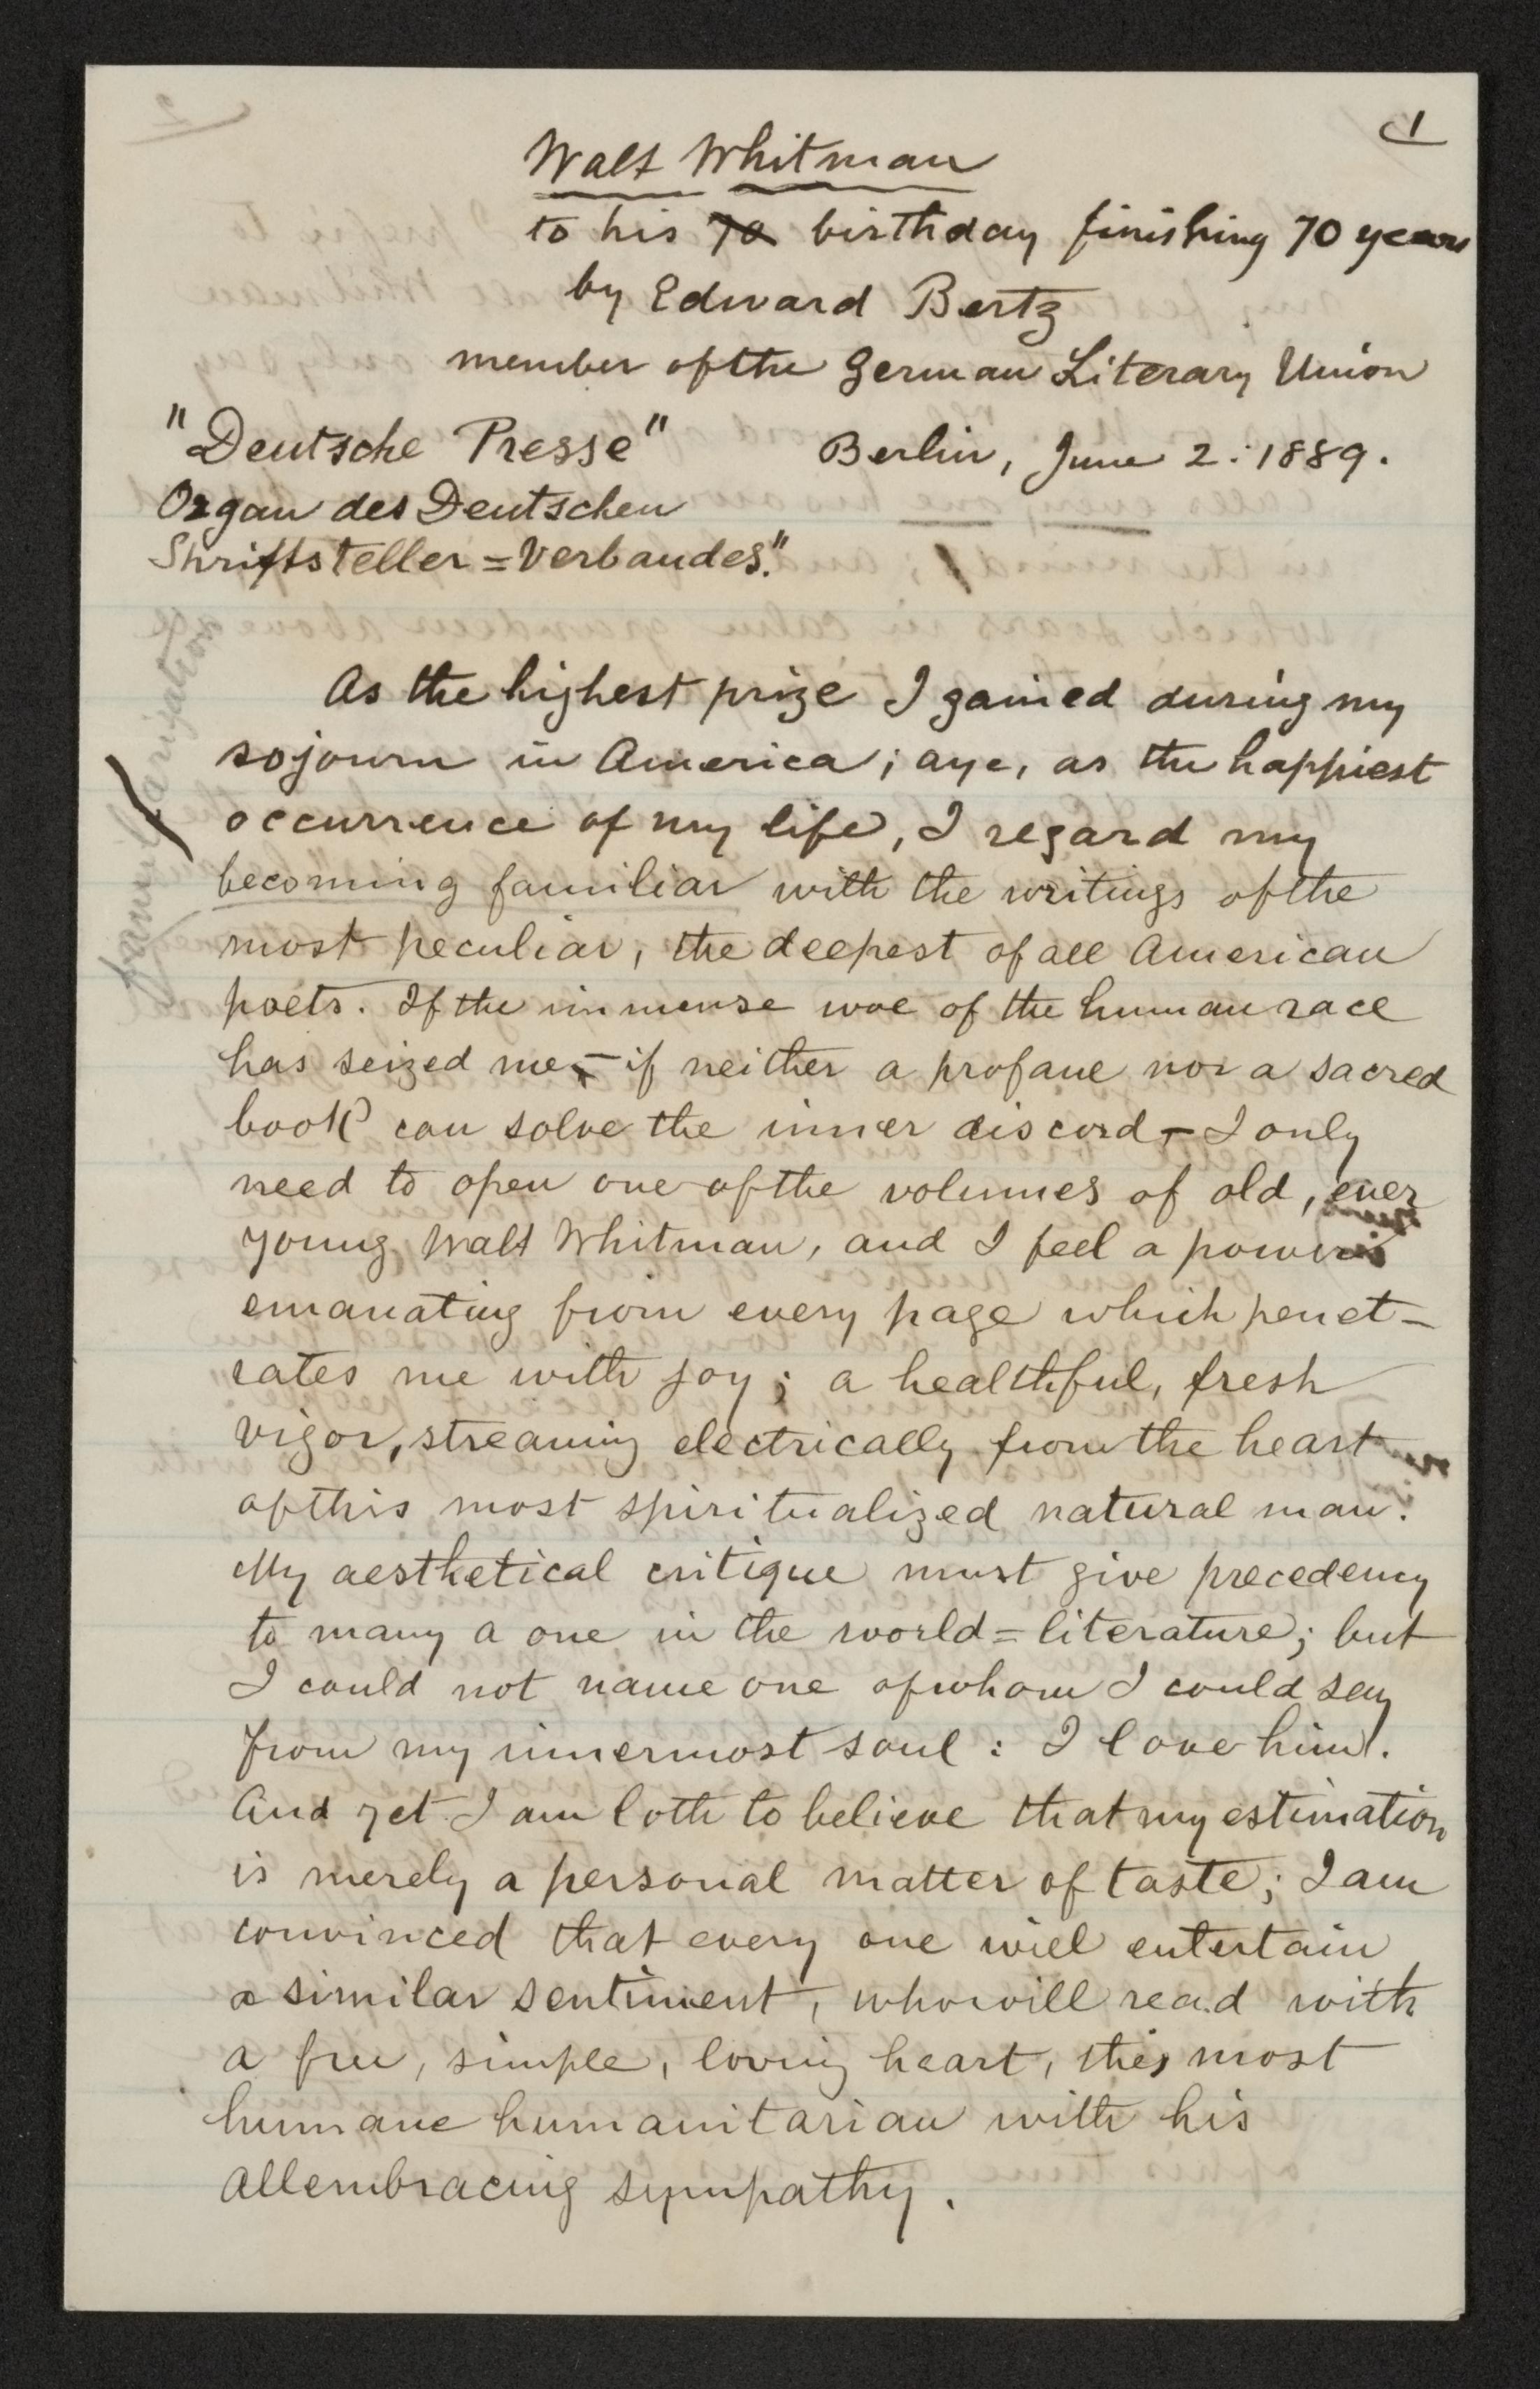 1
Walt Whitman
to his 70 birthday finishing 70 years
by Edward Bertz
member of the German Literary Union
"Deutsche Presse" Berlin, June 2. 1889.
Organ des Deutschen
Shriftsteller=Verbandes."
familiarization
As the highest prize I gained during my
sojourn in America; aye, as the happiest
occurrence of my life, I regard my
becoming familiar with the writings of the
most peculiar, the deepest of all American
poets. If the immense woe of the human race
has seized me, – if neither a profane nor a sacred
book can solve the inner discord – I only
need to open one of the volumes of old, ever
young Walt Whitman, and I feel a power
emanating from every page which penet-
rates me with joy; a healthful, fresh
vigor, streaming electrically from the heart
of this most spiritualized natural man.
My aesthetical critique must give precedency
to many a one in the world=literature; but
I could not name one of whom I could say
from my innermost soul: I love him.
And yet I am loth to believe that my estimation
is merely a personal matter of taste; I am
convinced that every one will entertain
a similar sentiment, who will read with
a free, simple, loving heart, this most
humane humanitarian with his
allembracing sympathy.